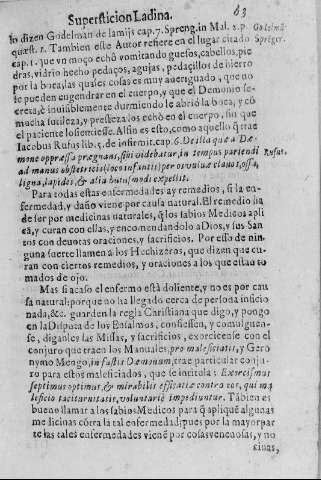 Supersticion Ladina. 63
lo dizen Godelmán de lamijs cap.7. Spreng. in Mal. 2.p Godelmã
quæst. 1. Tambien este Autor refiere en el lugar citado Sprẽger.
cap. 1. que vn moço echò vomitando guesos, cabellos, pie
dras, vidrio hecho pedaços, agujas, pedacillos de hierro
por la boca, las quales cosas es muy aueriguado, que no
se pueden engendrar en el cuerpo, y que el Demonio se-
creta, è inuisiblemente durmiendo le abriò la boca, y cõ
mucha sutileza, y presteza los echò en el cuerpo, sin que
el paciente lo sientiesse. Alsin es esto, como aquello q̃ trae
Iacobus Rufus lib. 5. de infirmit. cap. 6. De illa quæ a Dæ
mone oppressa prægnans, sibi videbatur, in tempus pariendi Rufus.
ad manus obstetricis (loco infantis) per os vuluæ clauos, ossa,
ligna, lapides, & alia huiusmodi expellit.
Para todas estas enfermedades ay remedios, si la en-
fermedad, y daño viene por causa natural. El remedio ha
de ser por medicinas naturales, q̃ los sabios Medicos apli
cã, y curan con ellas, y encomendandolo a Dios, y sus San
tos con deuotas oraciones, y sacrificios. Por esso de nin-
guna suerte llamen a los Hechizeros, que dizen que cu-
ran con ciertos remedios, y oraciones a los que estàn to
mados de ojo.
Mas si acaso el enfermo està doliente, y no es por cau
sa natural; porque no ha llegado cerca de persona inficio
nada, &c. guarden la regla Christiana que digo, y pongo
en la Disputa de los Ensalmos, confiessen, y comulguen-
se, diganles las Missas, y sacrificios, exorcicense con el
conjuro que traen los Manuales, pro malefitiatis, y Gero
nymo Mengo, in fustis Dæmonum, trae particular conju-
ro para estos maleficiados, que se intitula: Exorcismus
septimus optimus, & mirabilis efficatiæ contra eos, qui ma
leficio taciturnitatis, voluntariè impediuntur. Tãbien es
bueno llamar a los sabios Medicos para q̃ apliquẽ algunas
medicinas cõtra la tal enfermedad; pues por la mayor par
te las tales enfermedades vienẽ por cosas venenosas, y no
ciuas,